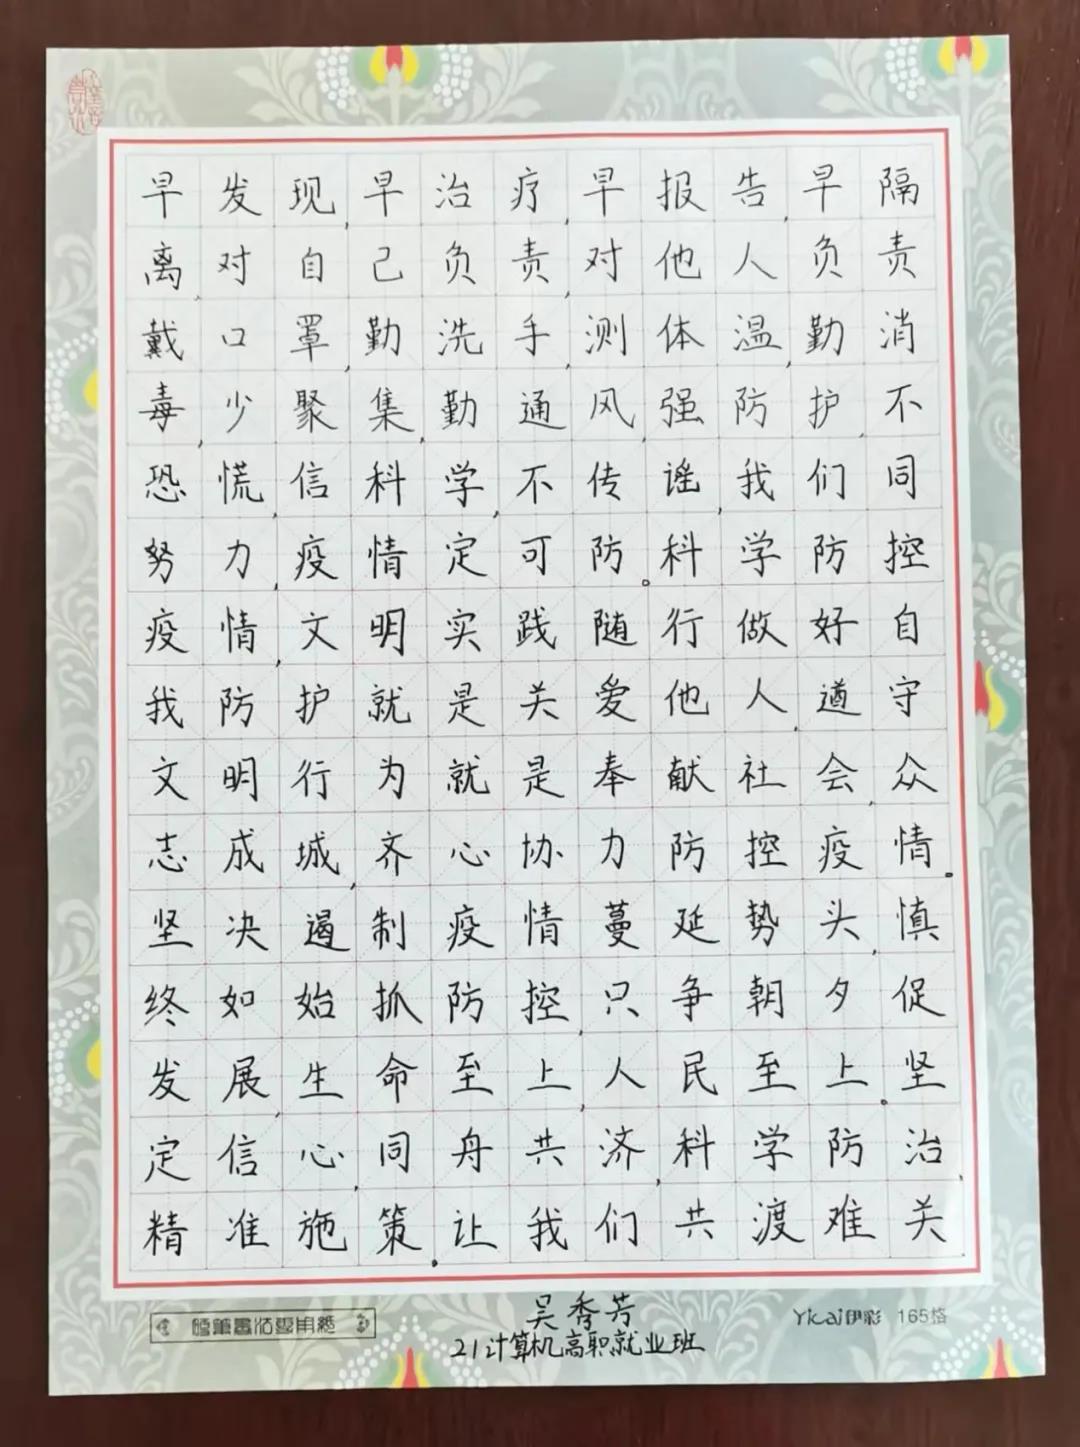 早发现,早治疗,早报告,早隔
离,对自己负责,对他人负责
戴口罩,勤洗手,测体温,勤消
毒,少聚集,勤通风,强防护,不
恐慌,信科学,不传谣,我们同
努力,疫情定可防。科学防控
疫情,文明实践随行做好自
我防护就是关爱他人,遵守
文明行为就是奉献社会,众
志成城,齐心协力防控疫情。
坚决遏制疫情蔓延势头,慎
终如始抓防控,只争朝夕促
发展,生命至上,人民至上。坚
定信心,同舟共济,科学防治,
精准施策,让我们共渡难关
硬笔书法专用纸
Yicai伊彩 165格
吴秀芳
21计算机高职就业班